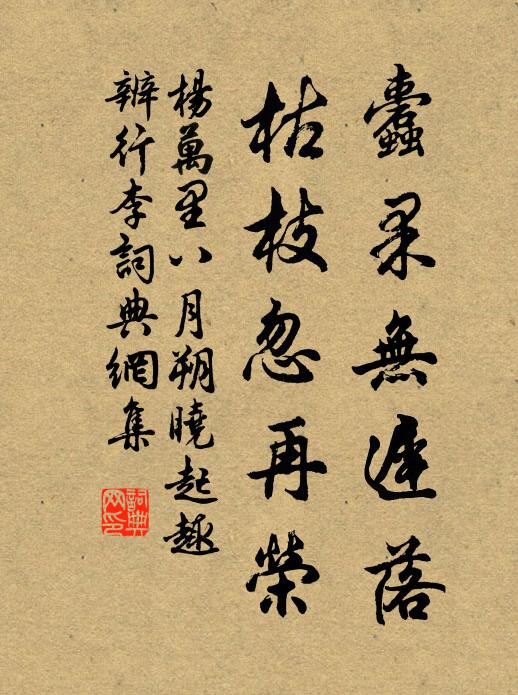 蠹果無遲落
枯枝忽再榮
楊萬里八月朔曉起趣
辨行李詞典網集
詞典
网印